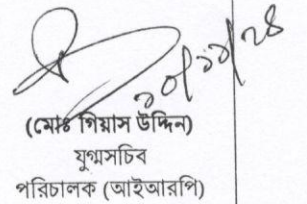 ১০/১১/২৪
(মোঃ গিয়াস উদ্দিন)
যুগ্মসচিব
পরিচালক (আইআরপি)